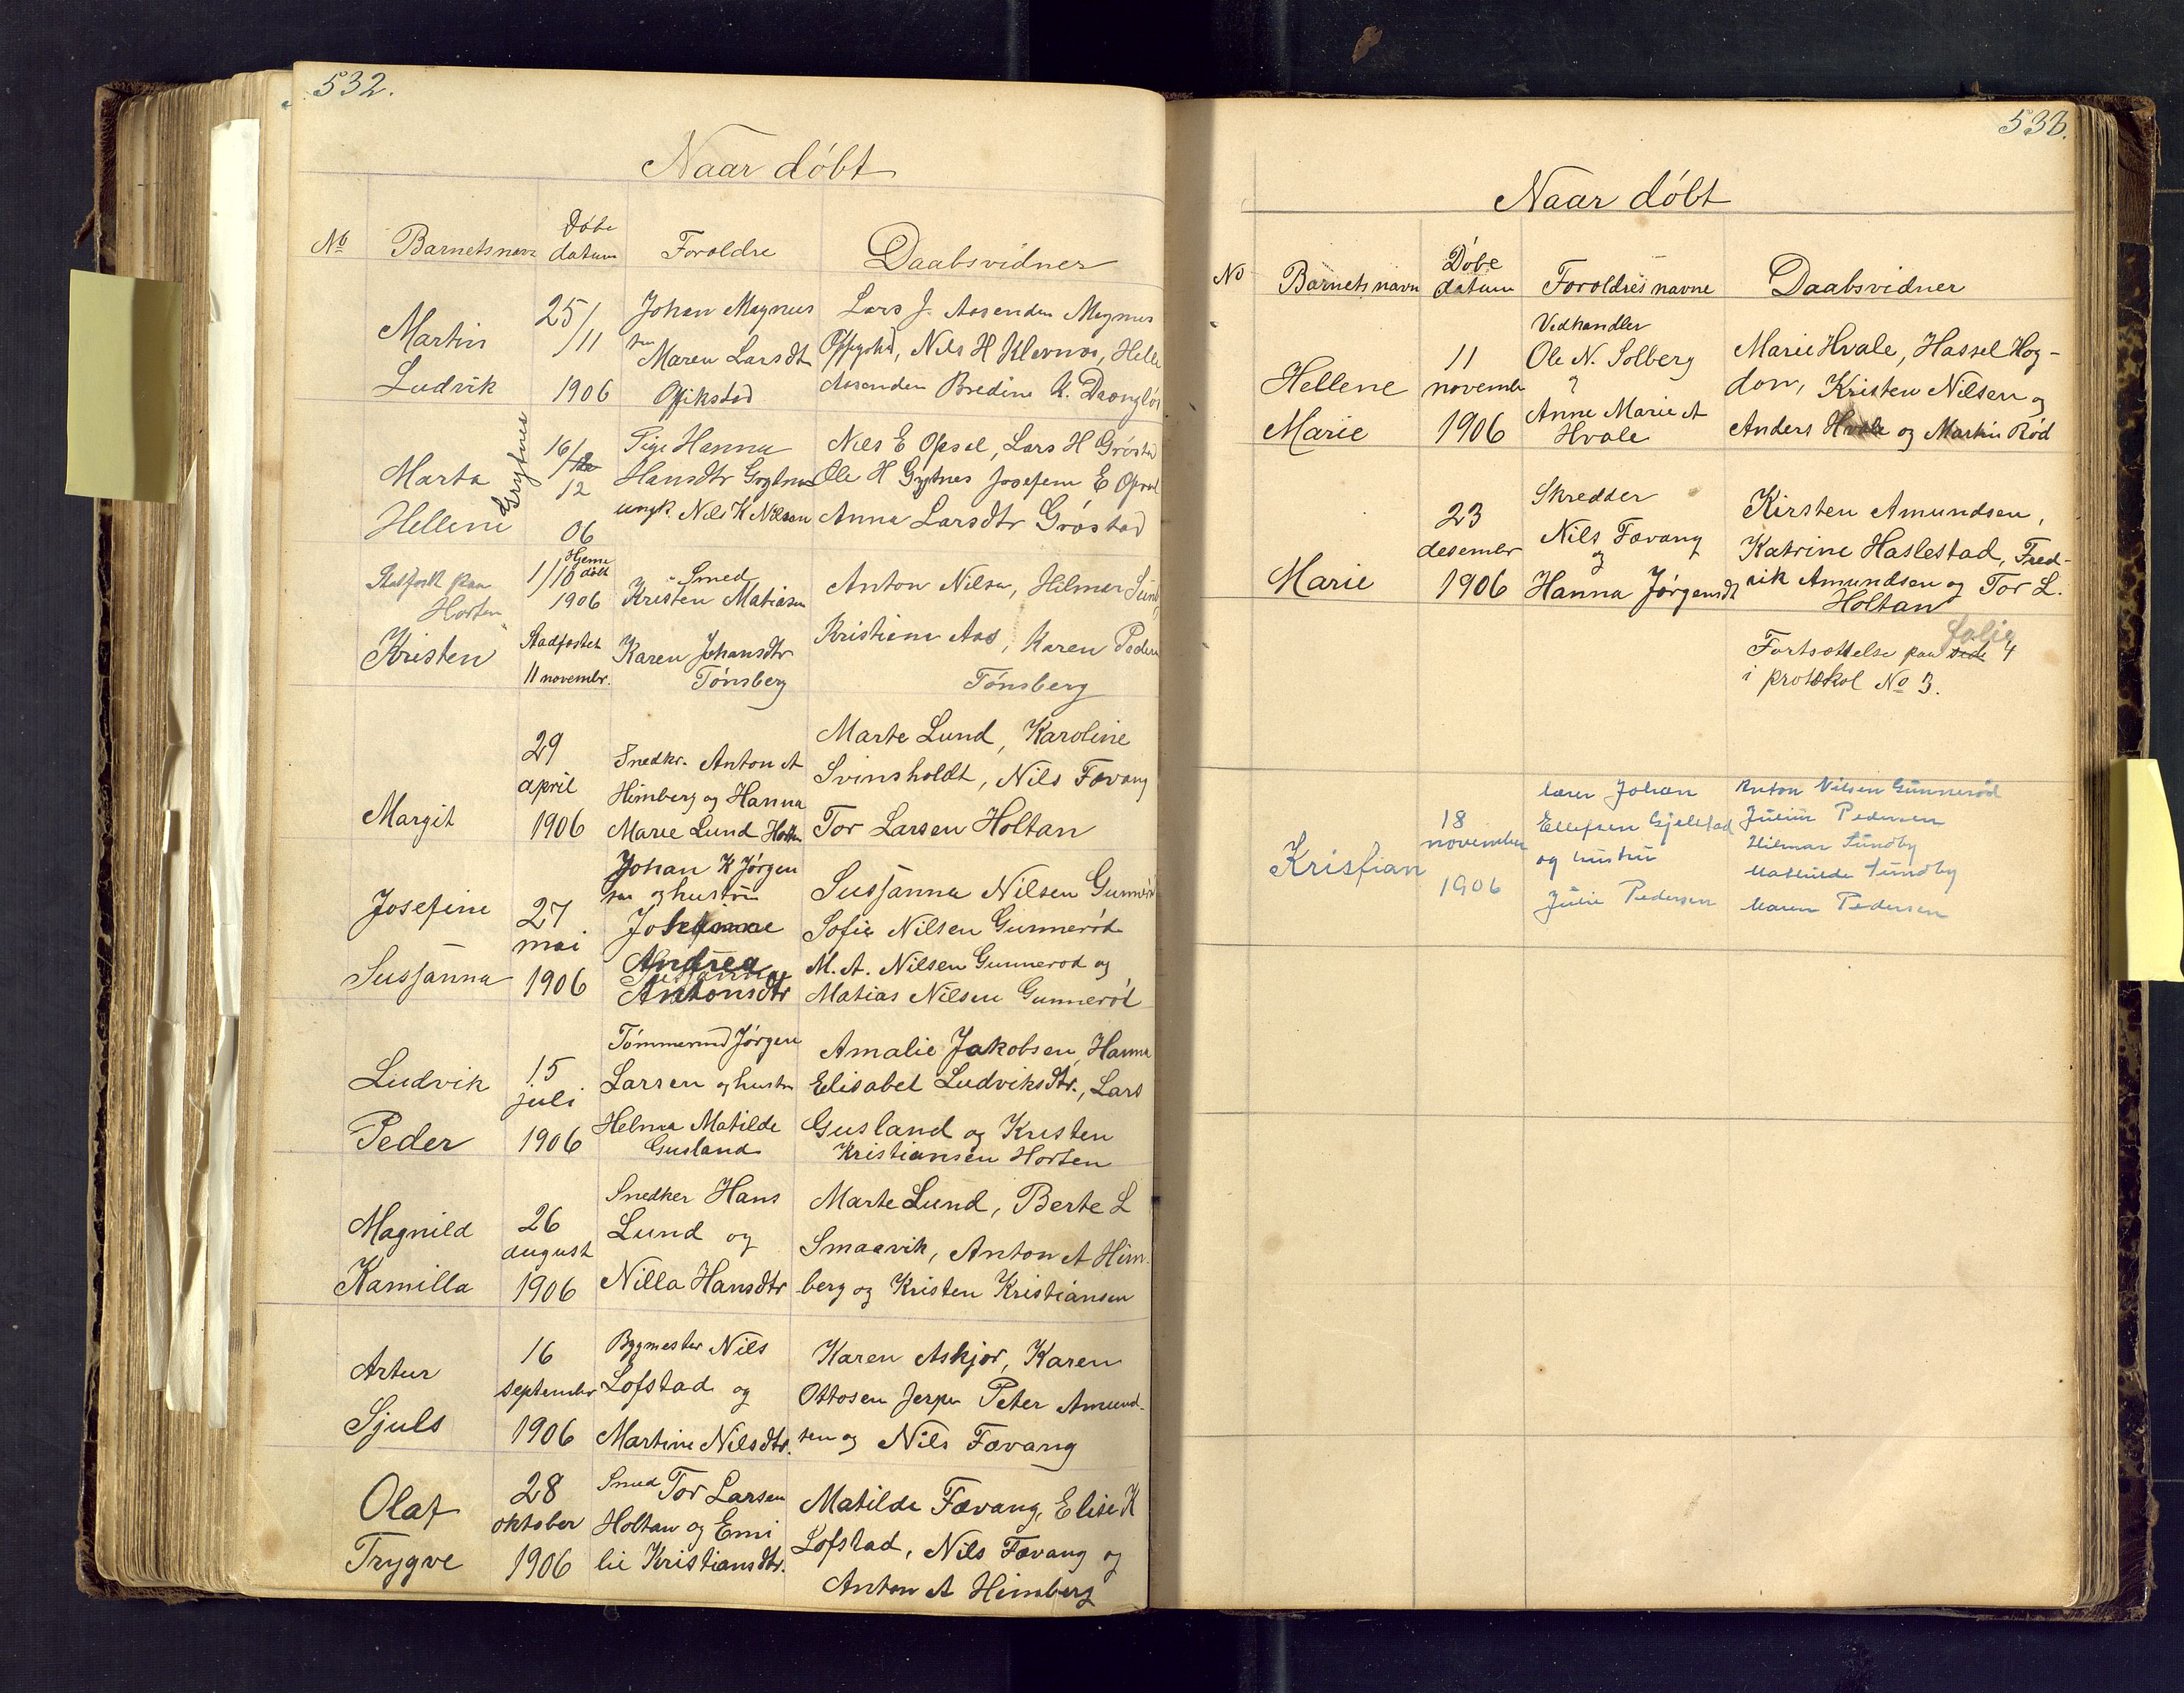 532.
Naar døbt
No Barnetsnavn Døbe datum Foroldre Daabsvidner
Martin Ludvik
25/11 1906
Johan Magnus
sen
Maren Larsdt
Lars J. Aasenden Magnus
Nils H Klevnos, Helle
Aasenden Bredine K.
Marta Hellene Grytnes
16/12 06
Pige Hanna
Hansdtr Grytnes
ungk. Nils K Nilsen
Nils E Opsal, Lars H Grøstad
Ole H Grytnes Josefem E Opsal
Anna Larsdtr Grøstad
Stadfestt paa
Horten
Kristen
1/10 Hjeme døbt
1906
Stadfestet
11 novembr.
Smed
Kristen Matiasen
Karen Johansdtr
Tønsberg
Anton Nilsen, Hilmar Sund,
Kristiane Aas, Karen Peders
Tønsberg
Margit
29
april
1906
Snedkr. Anton A
Himberg og Hanna
Marie Lund Holtan
Marte Lund, Karoline
Svinsholdt, Nils Fævang
Tor Larsen Holtan
Josefine
Susjanna
27
mai
1906
Johan K Jørgen
sen og hustru
Andrea
Antonsdtr
Susjanna Nilsen Gunnerød
Sofie Nilsen Gunnerød
M. A. Nilsen Gunnerød og
Matias Nilsen Gunnerød
Ludvik
Peder
15
juli
1906
Tømmermd Jørgen
Larsen og hustru
Helma Matilde
Gusland
Amalie Jakobsen, Hanna
Elisabet Ludviksdtr., Lars
Gusland og Kristen
Kristiansen Horten
Magnild
Kamilla
26
august
1906
Snedker Hans
Lund og
Nilla Hansdtr
Marte Lund, Berte L
Smaavik, Anton A Him-
berg og Kristen Kristiansen
Artur
Sjuls
16
september
1906
Bygmester Nils
Lofstad og
Martine Nilsdtr.
Karen Askjør, Karen
Ottosen Jerpe Peter Amund-
sen og Nils Fævang
Olaf
Trygve
28
oktober
1906
Smed Tor Larsen
Holtan og Emi
lie Kristiansdtr.
Matilde Fævang, Elise K
Lofstad, Nils Fævang og
Anton A Himberg
533.
Naar døbt
No Barnets navn Døbe datum Foroldres navne Daabsvidner
Hellene
Marie
11
novembr
1906
Vedhandler
Ole N. Solberg
?
Anne Marie A
Hvale
Marie Hvale, Hassel Hog-
don, Kristen Nilsen og
Anders Hvale og Martin Rød
Marie
23
desembr
1906
Skredder
Nils Fævang
og
Hanna Jørgensdt
Kirsten Amundsen,
Katrine Haslestad, Fred-
rik Amundsen og Tor L.
Holtan
Fortsættelse paa side folie 4
i protokol No 3.
Kristian
18
november
1906
lærer Johan
Ellefsen Gjelstad
og hustru
Julie Pedersen
Anton Nilsen Gunnerød
Julius Pedersen
Hilmar Sundby
Mathilde Sundby
Maren Pedersen